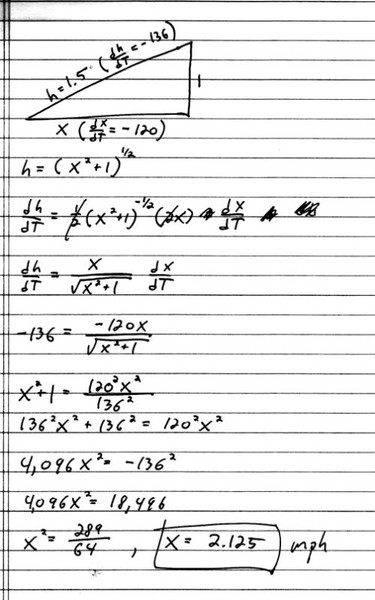 h = 1.5 (dh/dT = -136)
1
x (dx/dT = -120)
h = (x² + 1)^1/2
dh/dT = 1/2 (x² + 1)^-1/2 (2x) dx/dT
dh/dT = x/√(x² + 1) dx/dT
-136 = -120x/√(x² + 1)
x² + 1 = 120²x²/136²
136²x² + 136² = 120²x²
4,096x² = -136²
4,096x² = 18,496
x² = 289/64 , x = 2.125 mph